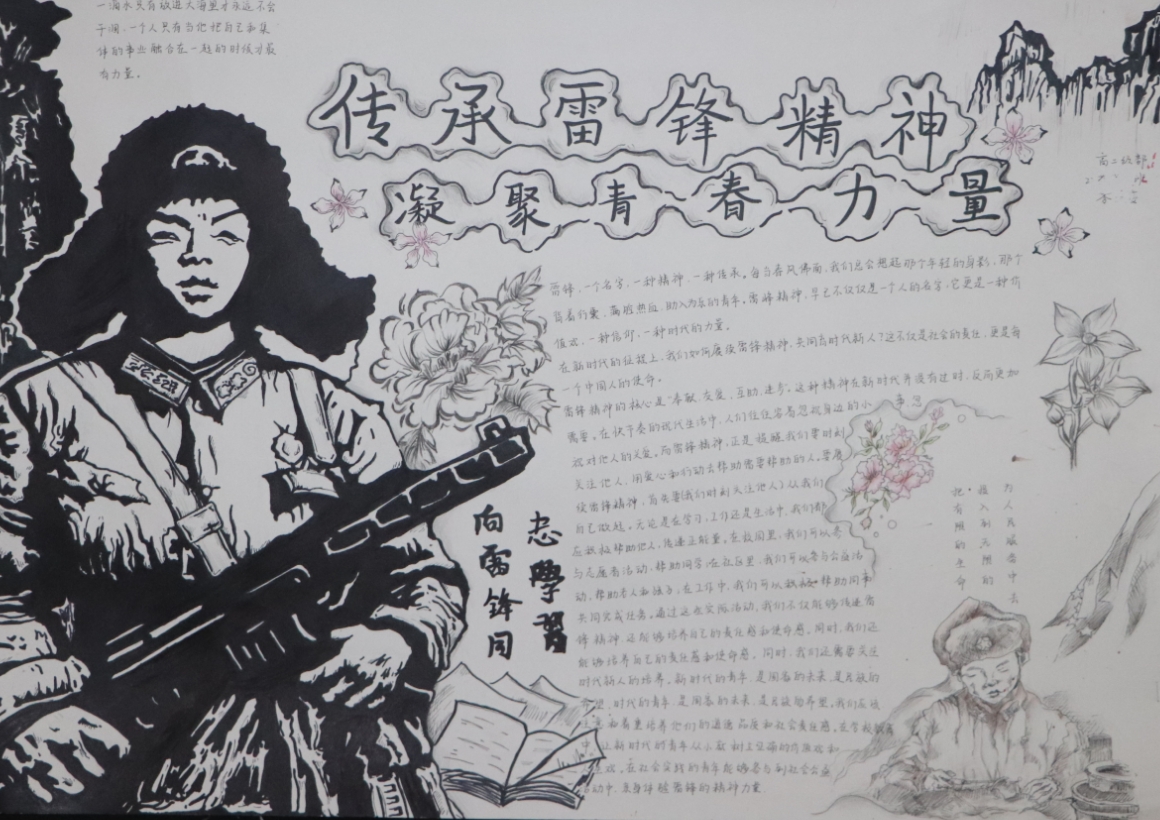 一滴水只有放进大海里才永远不会
干涸，一个人只有当他把自己和集
体的事业融合在一起的时候才最
有力量。
传承雷锋精神
凝聚青春力量
雷锋，一个名字，一种精神，一种传承。每当春风拂面，我们总会想起那个年轻的身影，那个
背着行囊，满腔热血，助人为乐的青年。雷锋精神，早已不仅仅是一个人的名字，它更是一种
一种信仰，一种时代的力量。
在新时代的征程上，我们如何赓续雷锋精神，共同为时代新人？这不仅是社会的责任，更是每
一个中国人的使命。
雷锋精神的核心是"奉献、友爱、互助、进步。这种精神在新时代并没有过时，反而更加
需要。在快节奏的现代生活中，人们往往容易忽视身边的小事，忽
视对他人的关爱。而雷锋精神，正是提醒我们要时刻
关注他人，用爱心和行动去帮助需要帮助的人。要赓
续雷锋精神，首先要(我们时刻关注他人)从我们
自己做起。无论是在学习、工作还是生活中，我们都
应积极帮助他人，传递正能量。在校园里，我们可以参
与志愿者活动，帮助同学；在社区里，我们可以参与公益活
动，帮助老人和孩子；在工作中，我们可以积极帮助同事
共同完成任务。通过这些实际活动，我们不仅能够传递雷
锋精神，还能够培养自己的责任感和使命感。同时，我们还
能够培养自己的责任感和使命感。同时，我们还需要关注
时代新人的培养。新时代的青年，是国家的未来，是民族的
希望。时代的青年，是国家的未来，是民族的希望。我们应该
着重培养他们的道德品质和社会责任感。在学校教育
中，让新时代的青年从小就树立
在社会实践的青年能够参与到社会公益
活动中，亲身体验雷锋的精神力量
向雷锋同
志學習
把有限的生命
投入到无限的
为人民服务中去